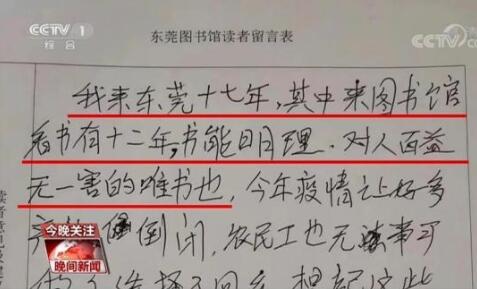 CCTV 1
综合
CCTV
东莞图书馆读者留言表
我来东莞十七年,其中来图书馆
看书有十二年,书能明理,对人百益
无一害的唯书也,今年疫情让好多
倒闭,农民工也无事可
想起这些
读者意见及建
今晚关注
晚间新闻